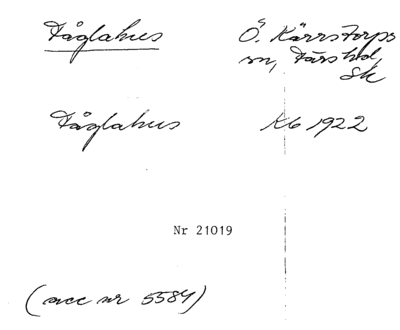 Fåglahus Ö. Kärrstorps
sn, Färs hd,
Sk
Fåglahus Kb 1922
Nr 21019
(acc nr 5584)